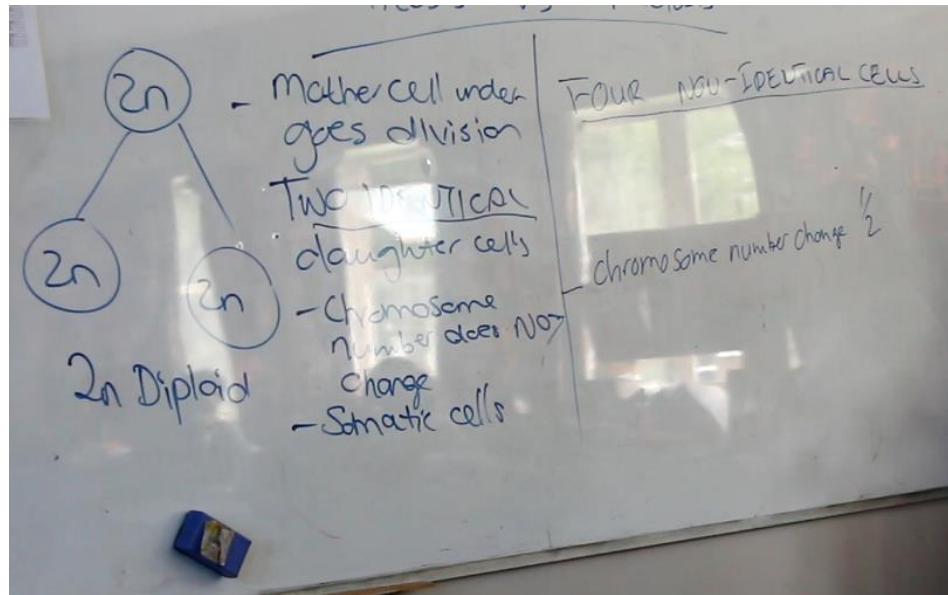 2n
2n
2n
2n Diploid
- Mother cell under
goes division
TWO IDENTICAL
daughter cells
- Chromosome
number does NOT
change
- Somatic cells
FOUR NON-IDENTICAL CELLS
- chromosome number change 1/2